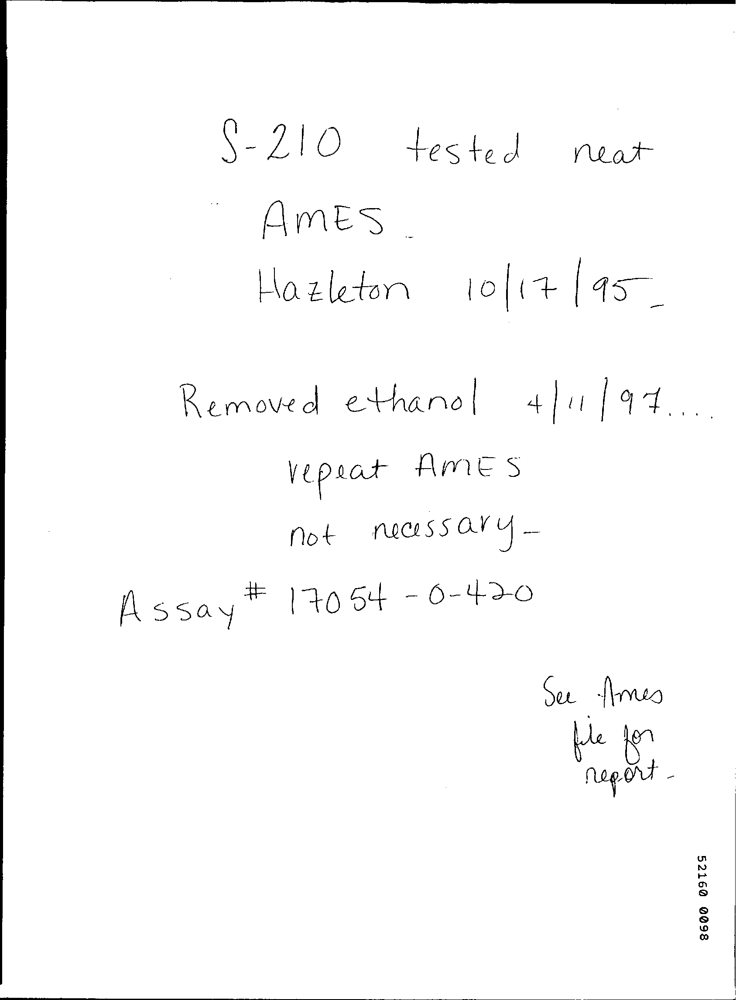 S-210 tested neat
AMES.
Hazleton 10/17/95-
Removed ethanol 4/11/97....
repeat AMES
not necessary-
Assay# 17054-0-420
See Ames
file for
report-
52160 0098